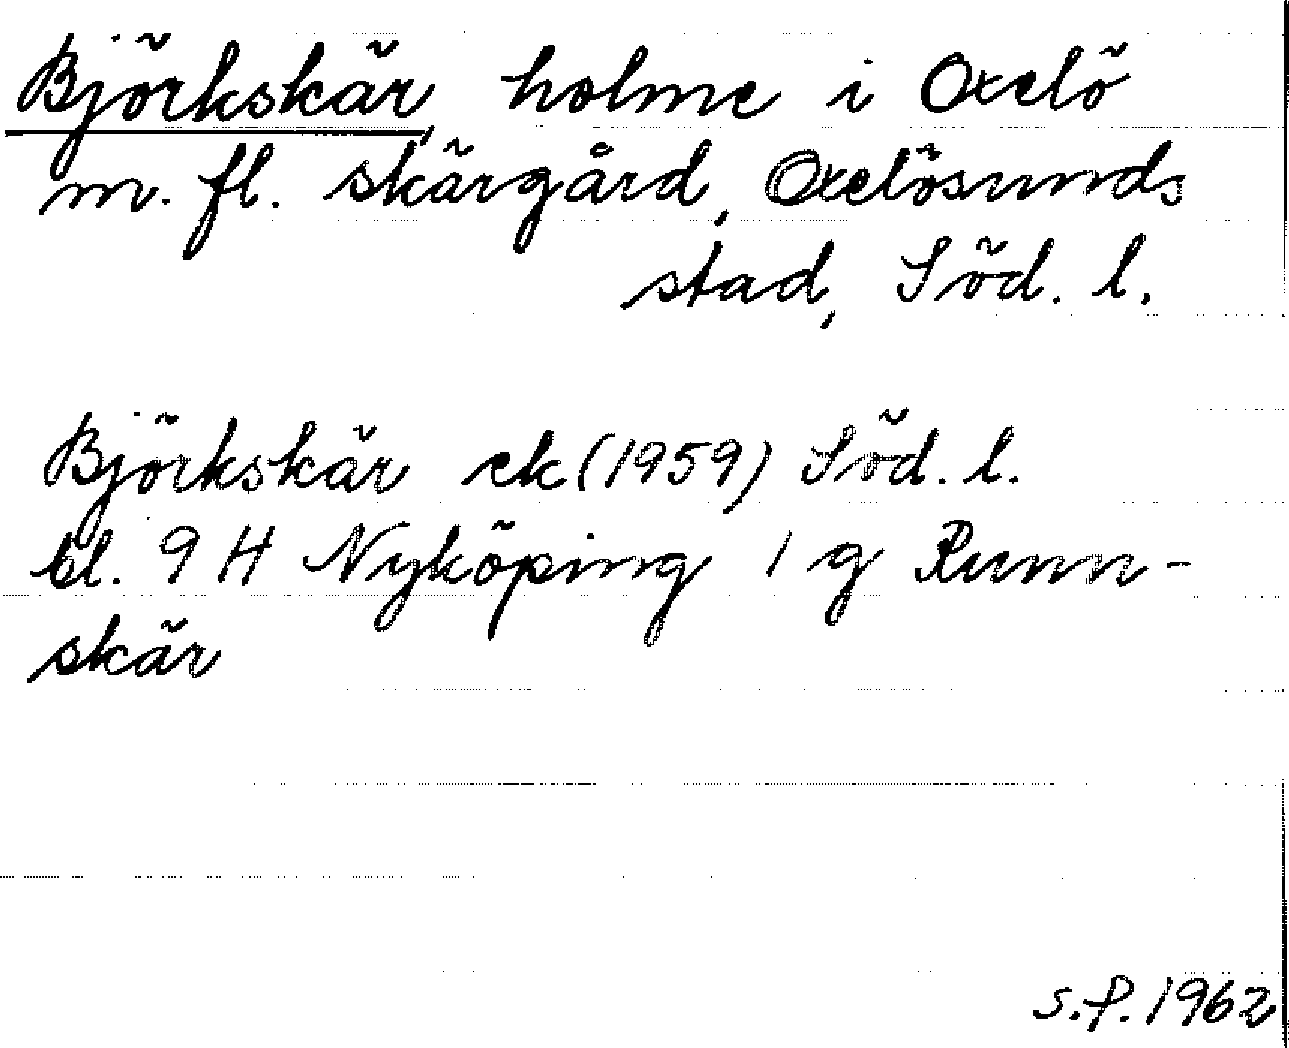 Björkskär, holme i Oxelö
m. fl. skärgård, Oxelösunds
stad, Söd. l.
Björkskär ek (1959) Söd. l.
bl. 9 H Nyköping 1 g Runn-
skär
S.P. 1962